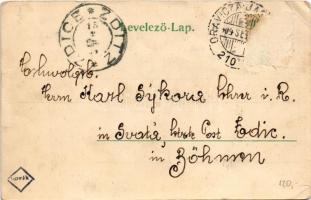 Levelező-Lap.
ZDICE * ZDITZ
ORAVICZA-JAM
909 SE
210
Herrn Karl Sýkora Lehrer i. R.
in Svatá letzte Post Zdic.
in Böhmen
120,-